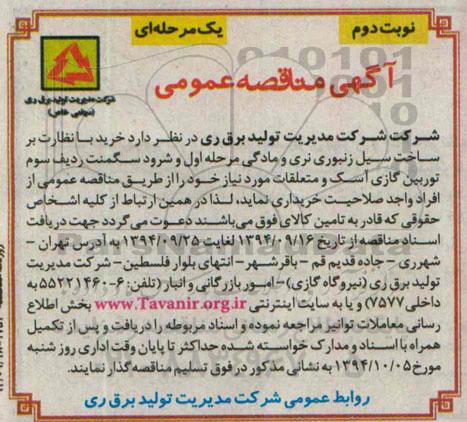 نوبت دوم
یک مرحله‌ای
آگهی مناقصه عمومی
شرکت مدیریت تولید برق ری
(سهامی خاص)
شرکت شرکت مدیریت تولید برق ری در نظر دارد خرید با نظارت بر
ساخت سیل زنبوری نری و مادگی مرحله اول و شرود سگمنت ردیف سوم
توربین گازی آسک و متعلقات مورد نیاز خود را از طریق مناقصه عمومی از
افراد واجد صلاحیت خریداری نماید، لذا در همین ارتباط از کلیه اشخاص
حقوقی که قادر به تامین کالای فوق می‌باشند دعوت می‌گردد جهت دریافت
اسناد مناقصه از تاریخ ۱۳۹۴/۰۹/۱۶ لغایت ۱۳۹۴/۰۹/۲۵ به آدرس تهران -
شهرری - جاده قدیم قم - باقرشهر - انتهای بلوار فلسطین - شرکت مدیریت
تولید برق ری (نیروگاه گازی) - امور بازرگانی و انبار (تلفن: ۶-۵۵۲۲۱۴۶۰
داخلی ۷۵۷۷) و یا به سایت اینترنتی www.Tavanir.org.ir بخش اطلاع
رسانی معاملات توانیر مراجعه نموده و اسناد مربوطه را دریافت و پس از تکمیل
همراه با اسناد و مدارک خواسته شده حداکثر تا پایان وقت اداری روز شنبه
مورخ ۱۳۹۴/۱۰/۰۵ به نشانی مذکور در فوق تسلیم مناقصه گذار نمایند.
روابط عمومی شرکت مدیریت تولید برق ری